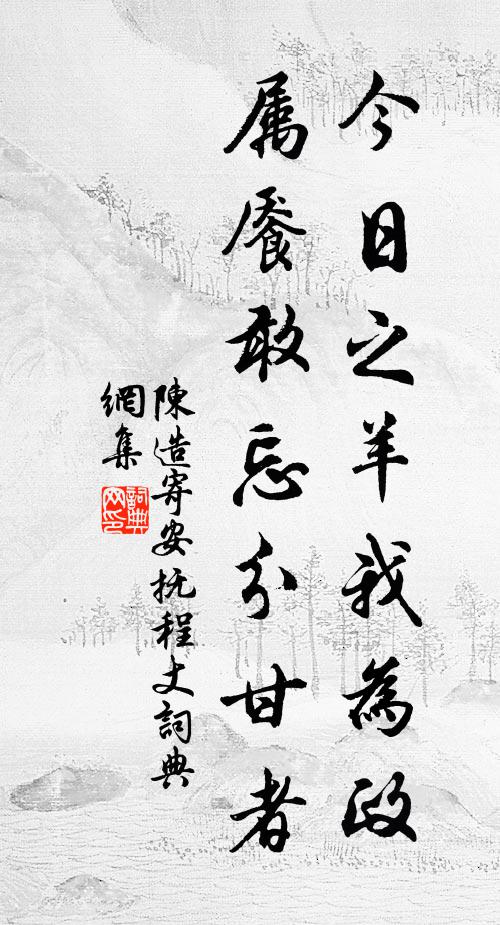 今日之羊我為政
属餍敢忘分甘者
陳造寄安抚程丈詞典
網集
詞典
网印